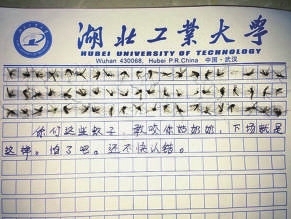 湖北工業大學
HUBEI UNIVERSITY OF TECHNOLOGY
Wuhan 430068, Hubei P.R.China 中国·武汉
你们这些蚊子,敢咬你奶奶,下场就是
这样。怕了吧。还不快认错。